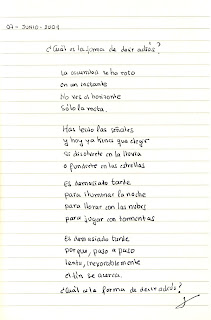 07 - JUNIO - 2009
¿Cuál es la forma de decir adiós?
La eternidad se ha roto
en un instante
No ves el horizonte
Sólo la meta.
Has leido las señales
y hoy ya tienes que elegir
si disolverte en la lluvia
o fundirte en las estrellas
Es demasiado tarde
para iluminar la noche
para llorar con las nubes
para jugar con tormentas
Es demasiado tarde
porque, paso a paso
lento, inexorablemente
el fin se acerca.
¿Cuál es la forma de decir adiós?